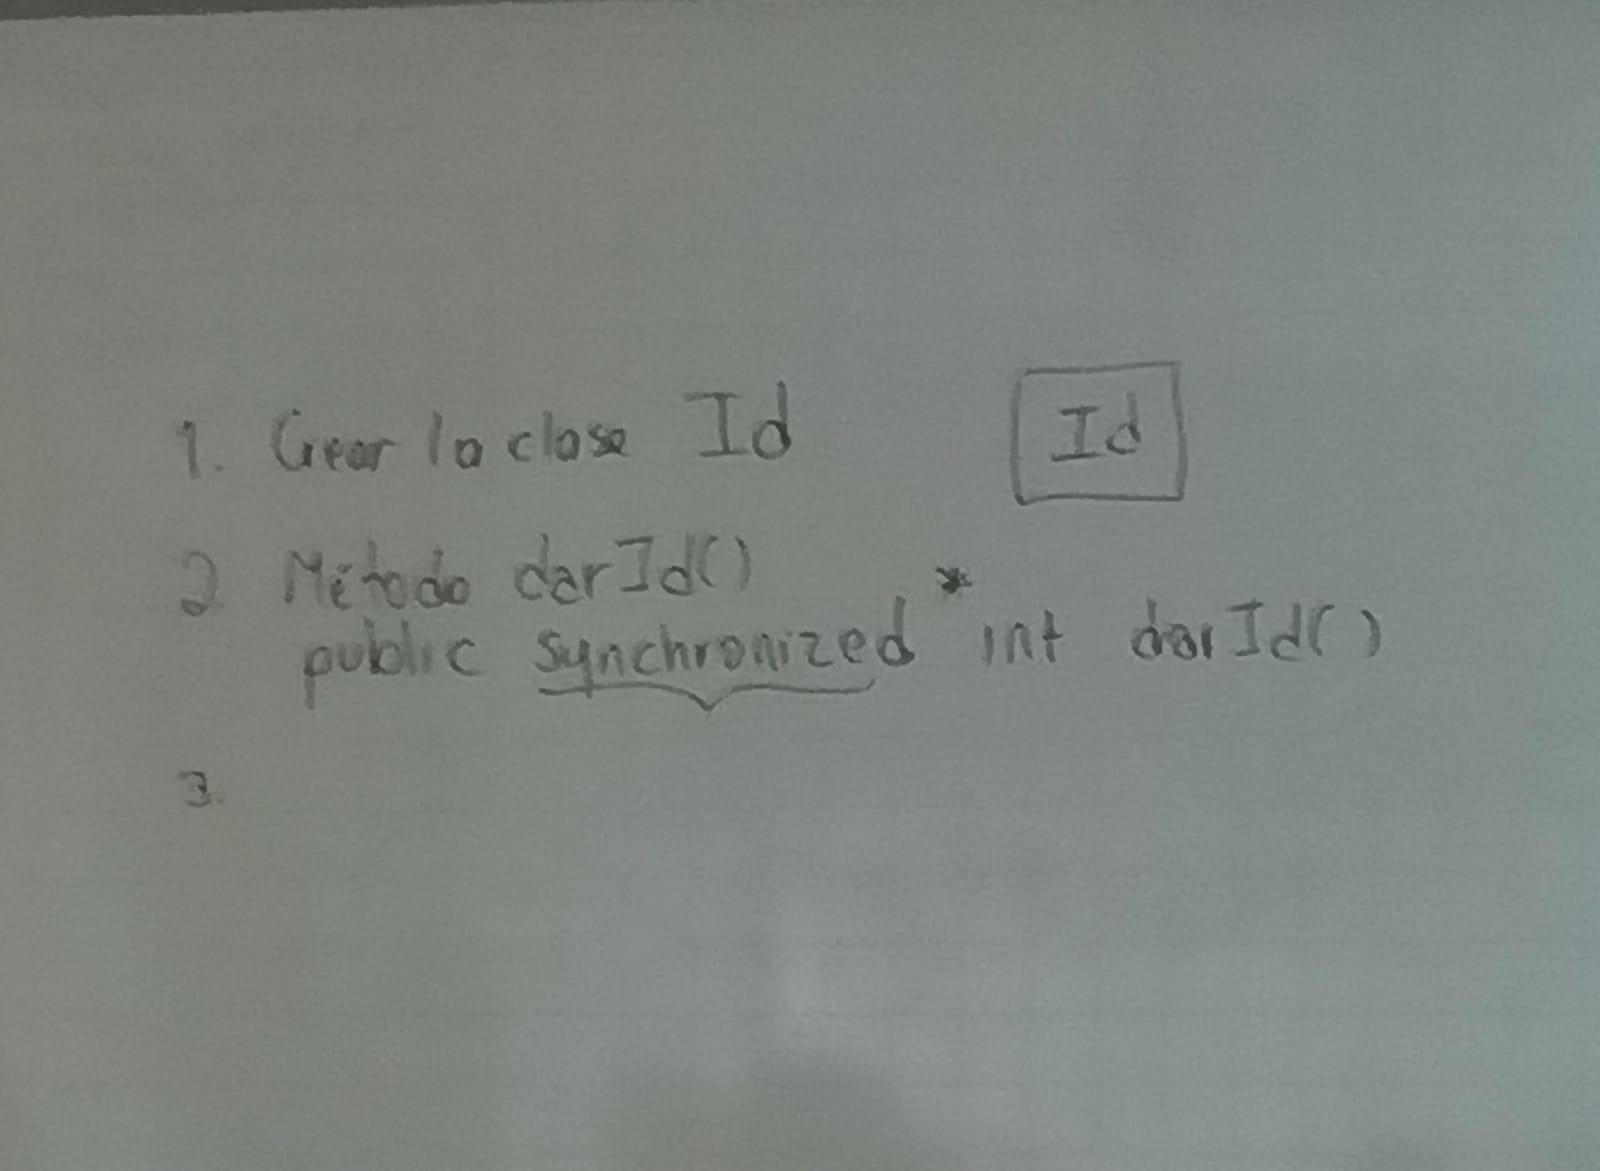 1. Crear la clase Id
Id
2 Método darId()
public synchronized * int darId()
3.